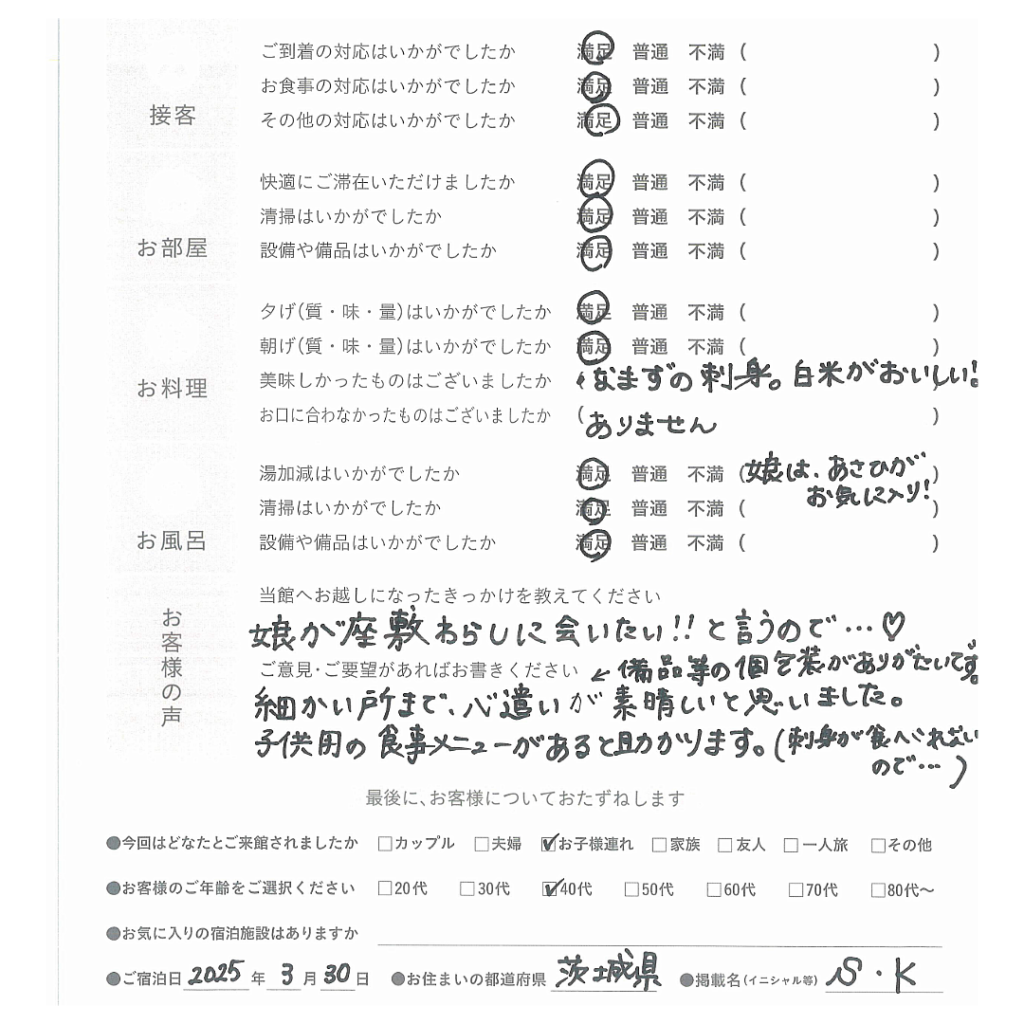 接客
ご到着の対応はいかがでしたか 満足 普通 不満 ( )
お食事の対応はいかがでしたか 満足 普通 不満 ( )
その他の対応はいかがでしたか 満足 普通 不満 ( )
お部屋
快適にご滞在いただけましたか 満足 普通 不満 ( )
清掃はいかがでしたか 満足 普通 不満 ( )
設備や備品はいかがでしたか 満足 普通 不満 ( )
お料理
夕げ(質・味・量)はいかがでしたか 満足 普通 不満 ( )
朝げ(質・味・量)はいかがでしたか 満足 普通 不満 ( )
美味しかったものはございましたか (なまずの刺身。白米がおいしい!)
お口に合わなかったものはございましたか (ありません )
お風呂
湯加減はいかがでしたか 満足 普通 不満 (娘は、あさひが )
お気に入り!
清掃はいかがでしたか 満足 普通 不満 ( )
設備や備品はいかがでしたか 満足 普通 不満 ( )
お客様の声
当館へお越しになったきっかけを教えてください
娘が座敷わらしに会いたい!!と言うので…♡
ご意見・ご要望があればお書きください ← 備品等の個包装がありがたいです。
細かい所まで、心遣いが素晴しいと思いました。
子供用の食事メニューがあると助かります。(刺身が食べれない
ので…)
最後に、お客様についておたずねします
●今回はどなたとご来館されましたか □カップル □夫婦 ☑お子様連れ □家族 □友人 □一人旅 □その他
●お客様のご年齢をご選択ください □20代 □30代 ☑40代 □50代 □60代 □70代 □80代〜
●お気に入りの宿泊施設はありますか
●ご宿泊日 2025 年 3 月 30 日 ●お住まいの都道府県 茨城県 ●掲載名(イニシャル等) S・K